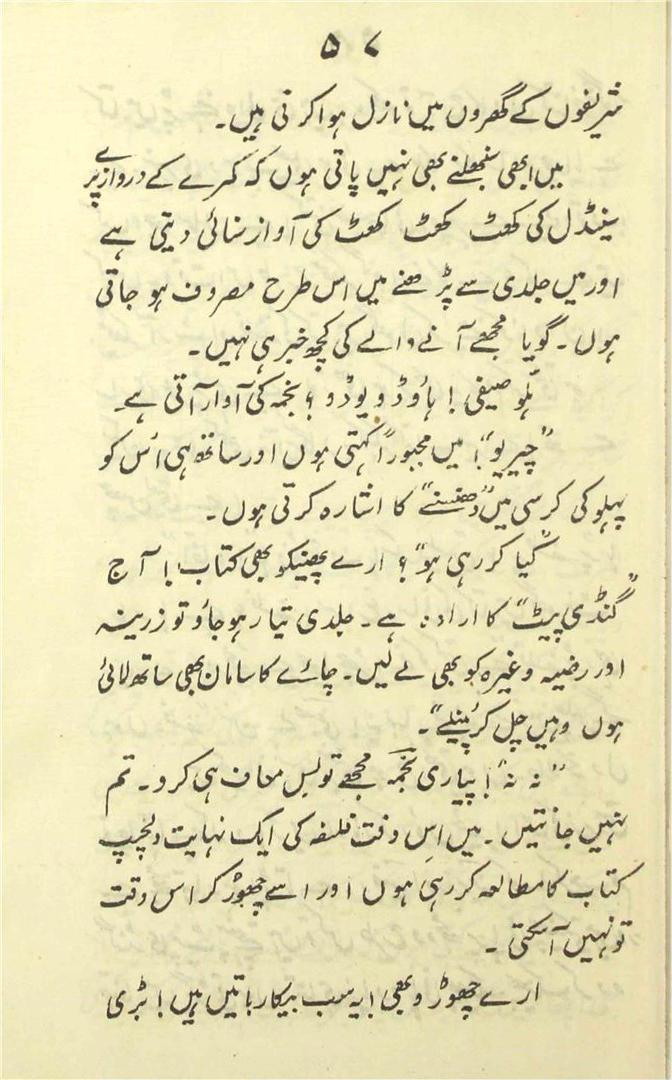 ۵۷
شریفوں کے گھروں میں نازل ہوا کرتی ہیں۔
میں ابھی سنبھلنے بھی نہیں پاتی ہوں کہ کمرے کے دروازے پر
سینڈل کی کھٹ کھٹ کھٹ کی آواز سنائی دیتی ہے
اور میں جلدی سے پڑھنے میں اس طرح مصروف ہو جاتی
ہوں۔ گویا مجھے آنے والے کی کچھ خبر ہی نہیں۔
ہلو صیفی! ہاؤ ڈو یو ڈو؟ نجمہ کی آواز آتی ہے۔
"چیریو"! میں مجبوراً کہتی ہوں اور ساتھ ہی اُس کو
پہلو کی کرسی میں "دھنسنے" کا اشارہ کرتی ہوں۔
"کیا کر رہی ہو"؟ ارے پھینکو بھی کتاب! آج
"گنڈی پیٹ" کا ارادہ ہے۔ جلدی تیار ہو جاؤ تو زرینہ
اور رضیہ وغیرہ کو بھی لے لیں۔ چائے کا سامان بھی ساتھ لائی
ہوں وہیں چل کر پئیں گے"۔
"نہ نہ"! پیاری نجمہ مجھے تو بس معاف ہی کرو۔ تم
نہیں جانتیں۔ میں اس وقت فلسفہ کی ایک نہایت دلچسپ
کتاب کا مطالعہ کر رہی ہوں اور اسے چھوڑ کر اس وقت
تو نہیں آسکتی۔
ارے چھوڑو بھی! یہ سب بیکار باتیں ہیں! بڑی